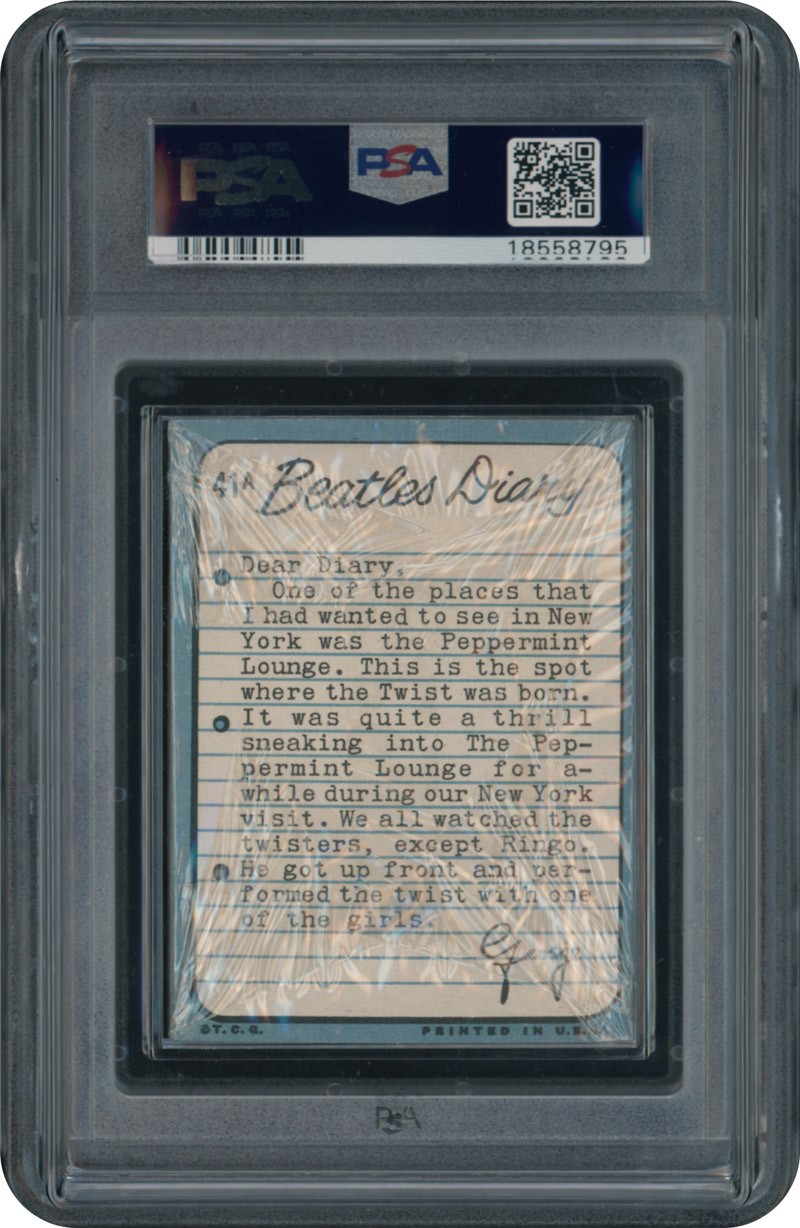 PSA
PSA
18558795
41A Beatles Diary
Dear Diary,
One of the places that
I had wanted to see in New
York was the Peppermint
Lounge. This is the spot
where the Twist was born.
It was quite a thrill
sneaking into The Pep-
permint Lounge for a-
while during our New York
visit. We all watched the
twisters, except Ringo.
He got up front and per-
formed the twist with one
of the girls.
George
©T.C.G. PRINTED IN U.S.
PSA